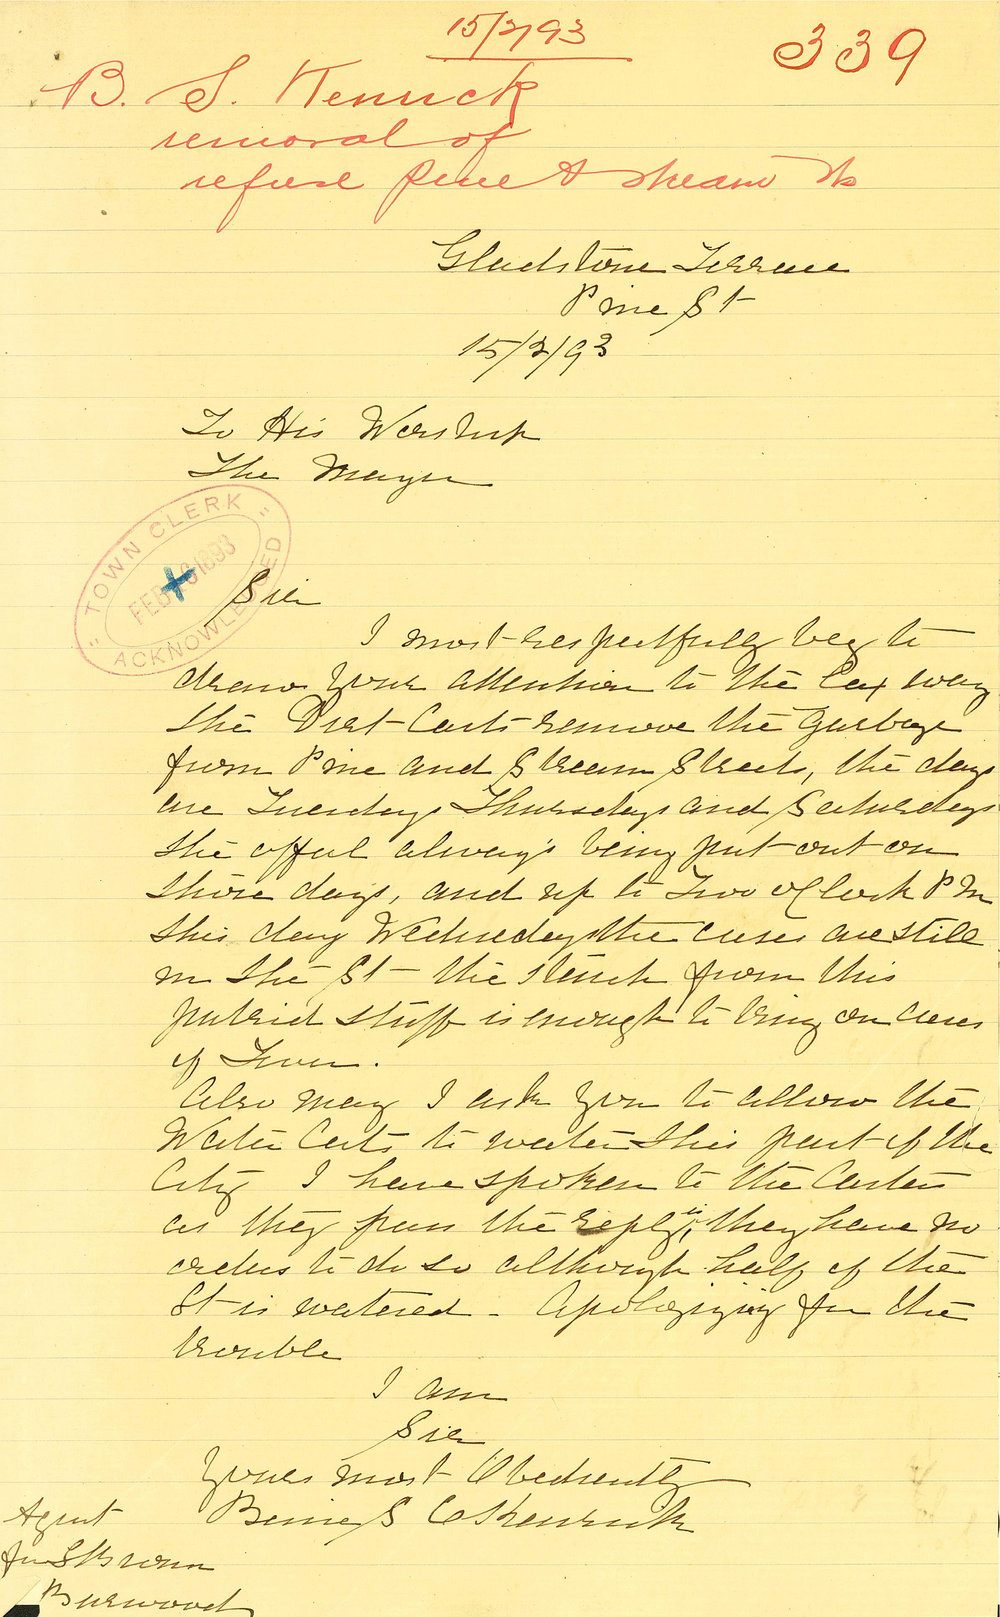 15/2/93
339
B. S. Kenrick
removal of
refuse Pine & Stream Sts
Gladstone Terrace
Pine St
15/2/93
To His Worship
The Mayor
TOWN CLERK
FEB 16 1893
ACKNOWLEDGED
Sir
I most respectfully beg to
draw your attention to the Lax way
the Dirt Carts remove the Garbage
from Pine and Stream Streets, the days
are Tuesdays Thursdays and Saturdays
the offal always being put out on
those days, and up to Two oClock PM
this day Wednesday the cases are still
in the St - the stench from this
putrid stuff is enough to bring on cases
of Fever.
Also may I ask you to allow the
Water Carts to water this part of the
City I have spoken to the Carters
as they pass the reply is, they have no
orders to do so although half of the
St is watered - Apologizing for the
trouble
I am
Sir
Yours most Obediently
S C Kenrick
Agent
for S Brown
Burwood